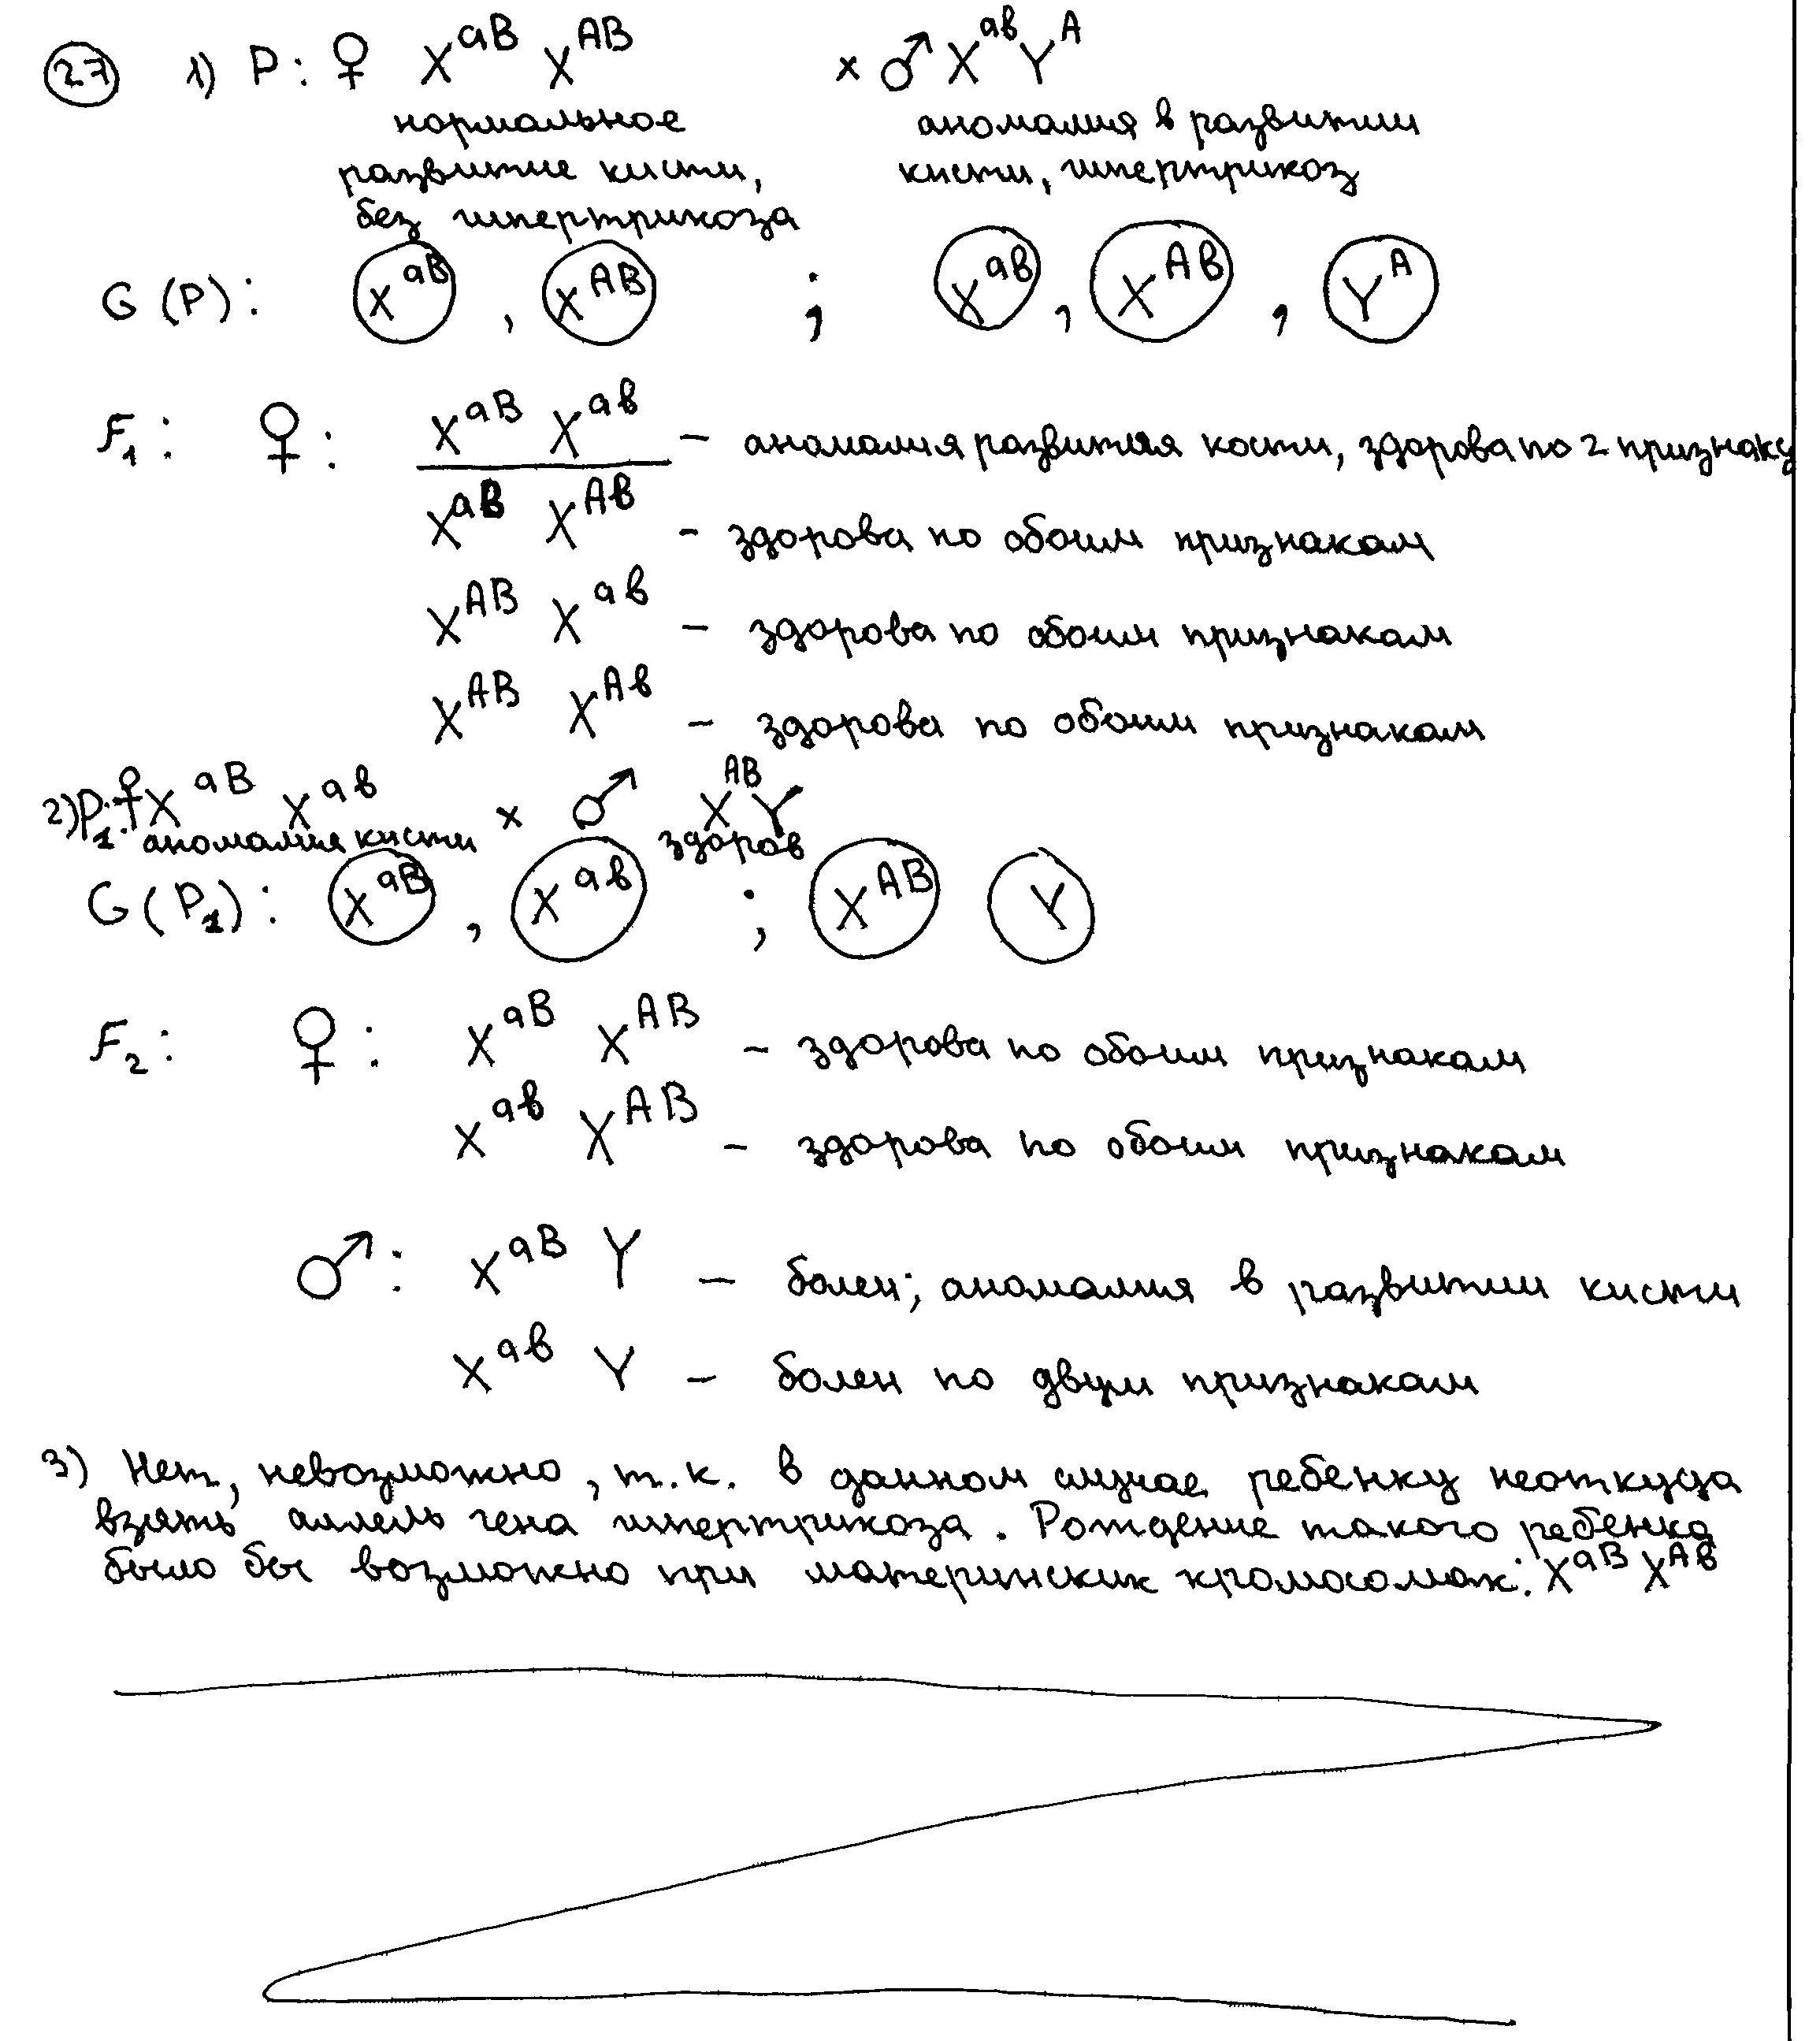 27 1) P: ♀ X^aB X^AB × ♂ X^aв Y^A
нормальное аномалия в развитии
развитие кисти, кисти, гипертрикоз
без гипертрикоза
G (P): X^aB , X^AB ; X^aв , X^Aв , Y^A
F1: ♀: X^aB X^aв – аномалия развития кости, здорова по 2 признаку
X^aB X^Aв – здорова по обоим признакам
X^AB X^aв – здорова по обоим признакам
X^AB X^Aв – здорова по обоим признакам
2) P1: ♀ X^aB X^aв × ♂ X^AB Y
аномалия кисти здоров
G (P1): X^aB , X^aв ; X^AB Y
F2: ♀: X^aB X^AB – здорова по обоим признакам
X^aв X^AB – здорова по обоим признакам
♂: X^aB Y – болен; аномалия в развитии кисти
X^aв Y – болен по двум признакам
3) Нет, невозможно, т.к. в данном случае ребенку неоткуда
взять аллель гена гипертрикоза. Рождение такого ребенка
было бы возможно при материнских хромосомах: X^aB X^Aв